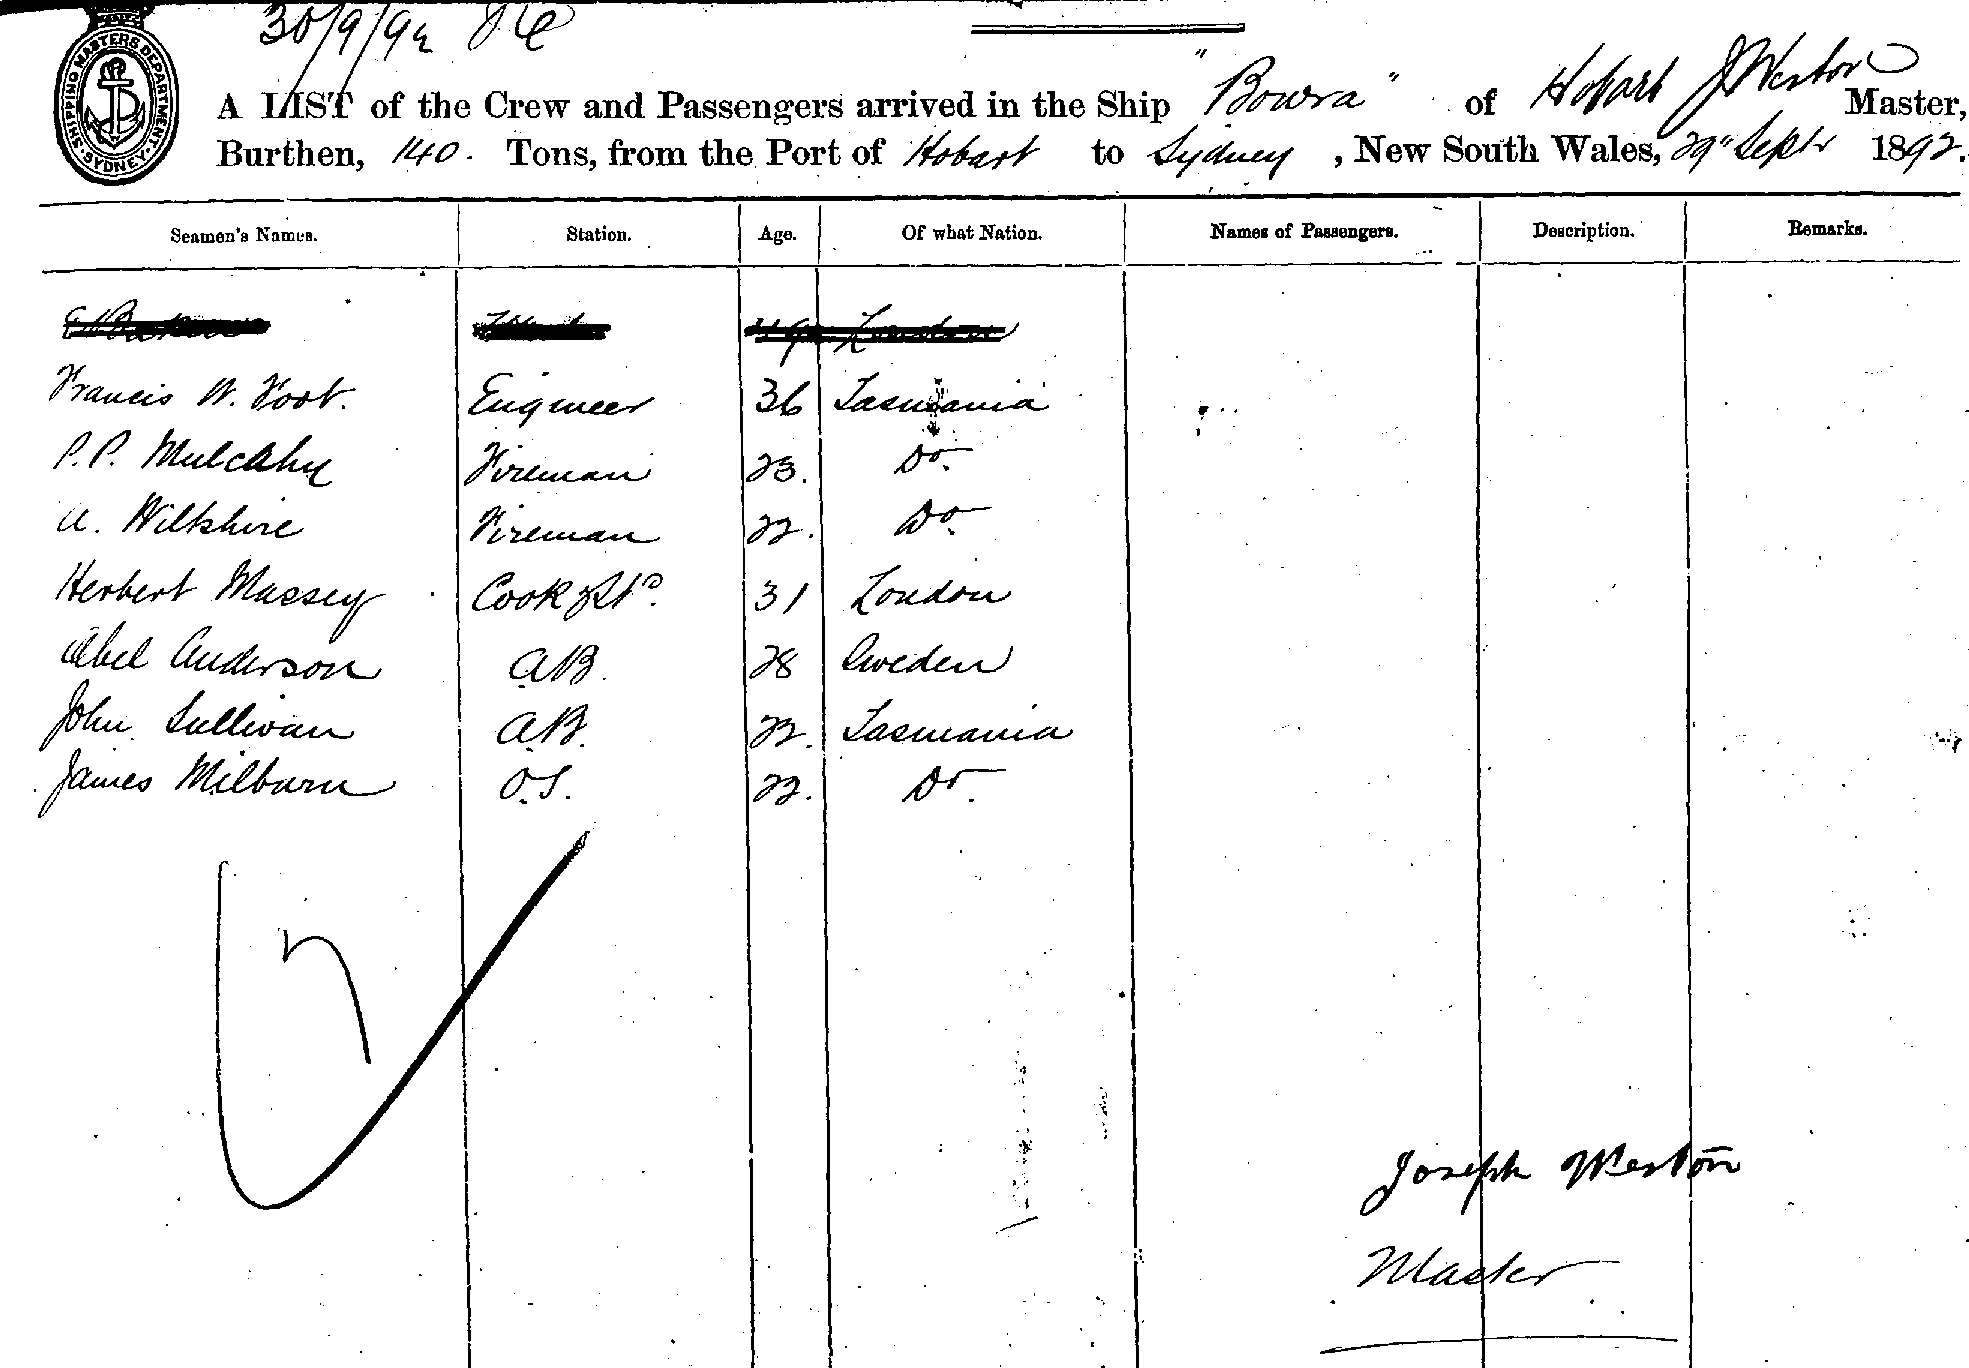 30/9/92
SHIPPING MASTERS DEPARTMENT · SYDNEY ·
A LIST of the Crew and Passengers arrived in the Ship "Bowra" of Hobart J Weston Master,
Burthen, 140. Tons, from the Port of Hobart to Sydney, New South Wales, 29" Septr 1892.
Seamen's Names. Station. Age. Of what Nation. Names of Passengers. Description. Remarks.
Francis W. Foot. Engineer 36 Tasmania
P.P. Mulcahy Fireman 23. Do.
A. Wilkshire Fireman 22. Do.
Herbert Massey Cook & Std. 31 London
Abel Anderson AB. 28 Sweden
John Sullivan AB. 22. Tasmania
James Milburn O.S. 22. Do.
Joseph Weston
Master